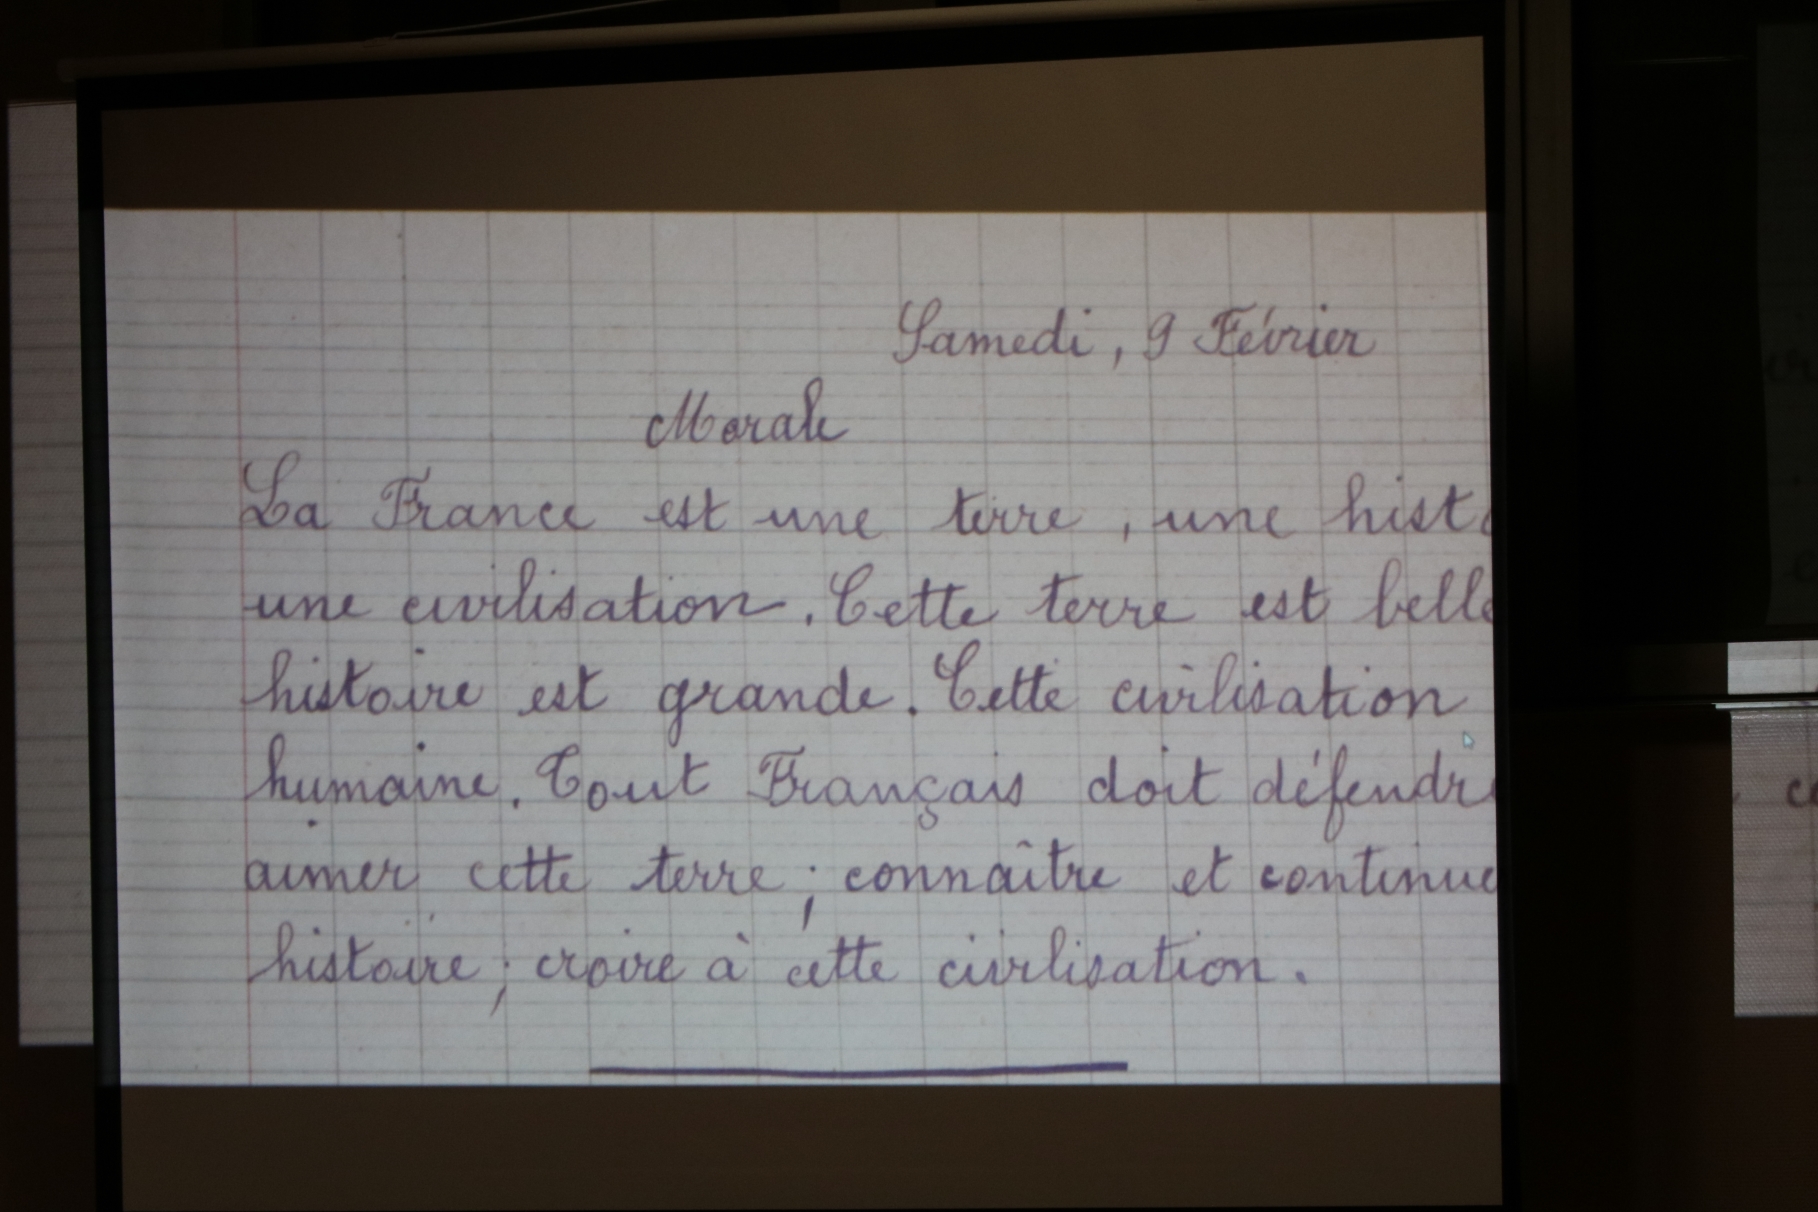 Samedi, 9 Février
Morale
La France est une terre, une histo
une civilisation. Cette terre est belle
histoire est grande. Cette civilisation
humaine. Tout Français doit défendr
aimer cette terre; connaître et continue
histoire; croire à cette civilisation.